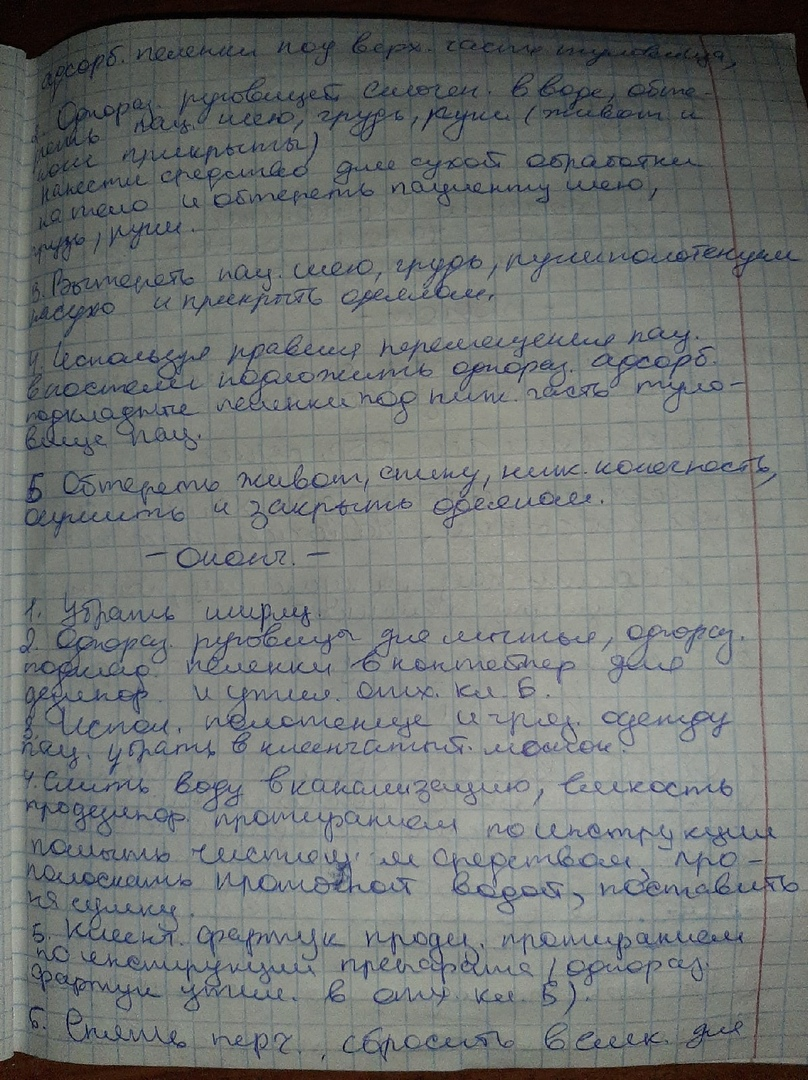 адсорб. пеленки под верх. часть туловища,
2. Однораз. рукавицей смочен. в воде, обте-
реть пац. шею, грудь, руки (живот и
ноги прикрыты)
нанести средство для сухой обработки
на тело и обтереть пациенту шею,
грудь, руки.
3. Вытереть пац. шею, грудь, руки полотенцем
насухо и прикрыть одеялом,
4. Используя правила перемещения пац.
в постели подложить однораз. адсорб.
подкладные пеленки под ниж. часть туло-
вища пац.
5 Обтереть живот, спину, ниж. конечность,
осушить и закрыть одеялом.
- Оконч. -
1. Убрать ширму.
2. Однораз. рукавицы для мытья, однораз.
подклад. пеленки в контейнер для
дезинфор. и утил. отх. кл. Б.
3. Испол. полотенце и гряз. одежду
пац. убрать в клеенчатый. мешок.
4. Слить воду в канализацию, емкость
продезинфор. протиранием по инструкции
помыть чистящим средством, про-
полоскать проточной водой, поставить
на сушку.
5. Клеент. фартук продез. протиранием
по инструкции препарата (однораз.
фартук утил. в отх кл. Б).
6. Снять перч., сбросить в емк. для